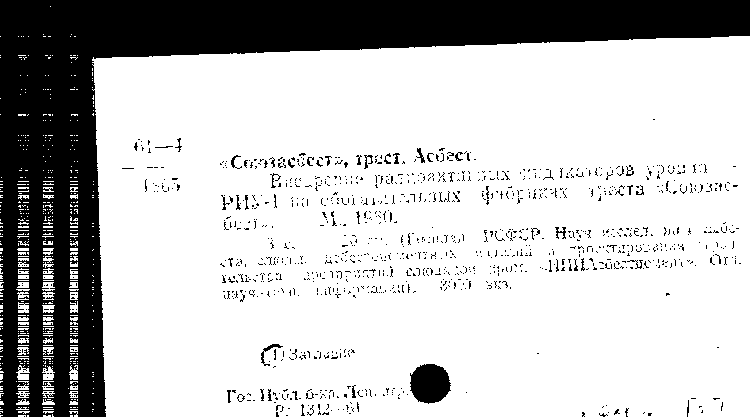 61—4
«Союзасбест», трест. Асбест.
Внедрение радиоактивных индикаторов уровня
РИУ-1 на обогатительных фабриках треста «Союзас-
бест». М., 1960.
3 с. 20 см. (Госплан РСФСР. Науч.-исслед. ин-т асбе-
ста, слюды, асбестоцементных изделий и проектирования строи-
тельства предприятий слюдяной пром. «НИИАсбестцемент». Отд.
науч.-техн. информации). 3000 экз.
1) Заглавие
Гос. Публ. б-ка. Лен.